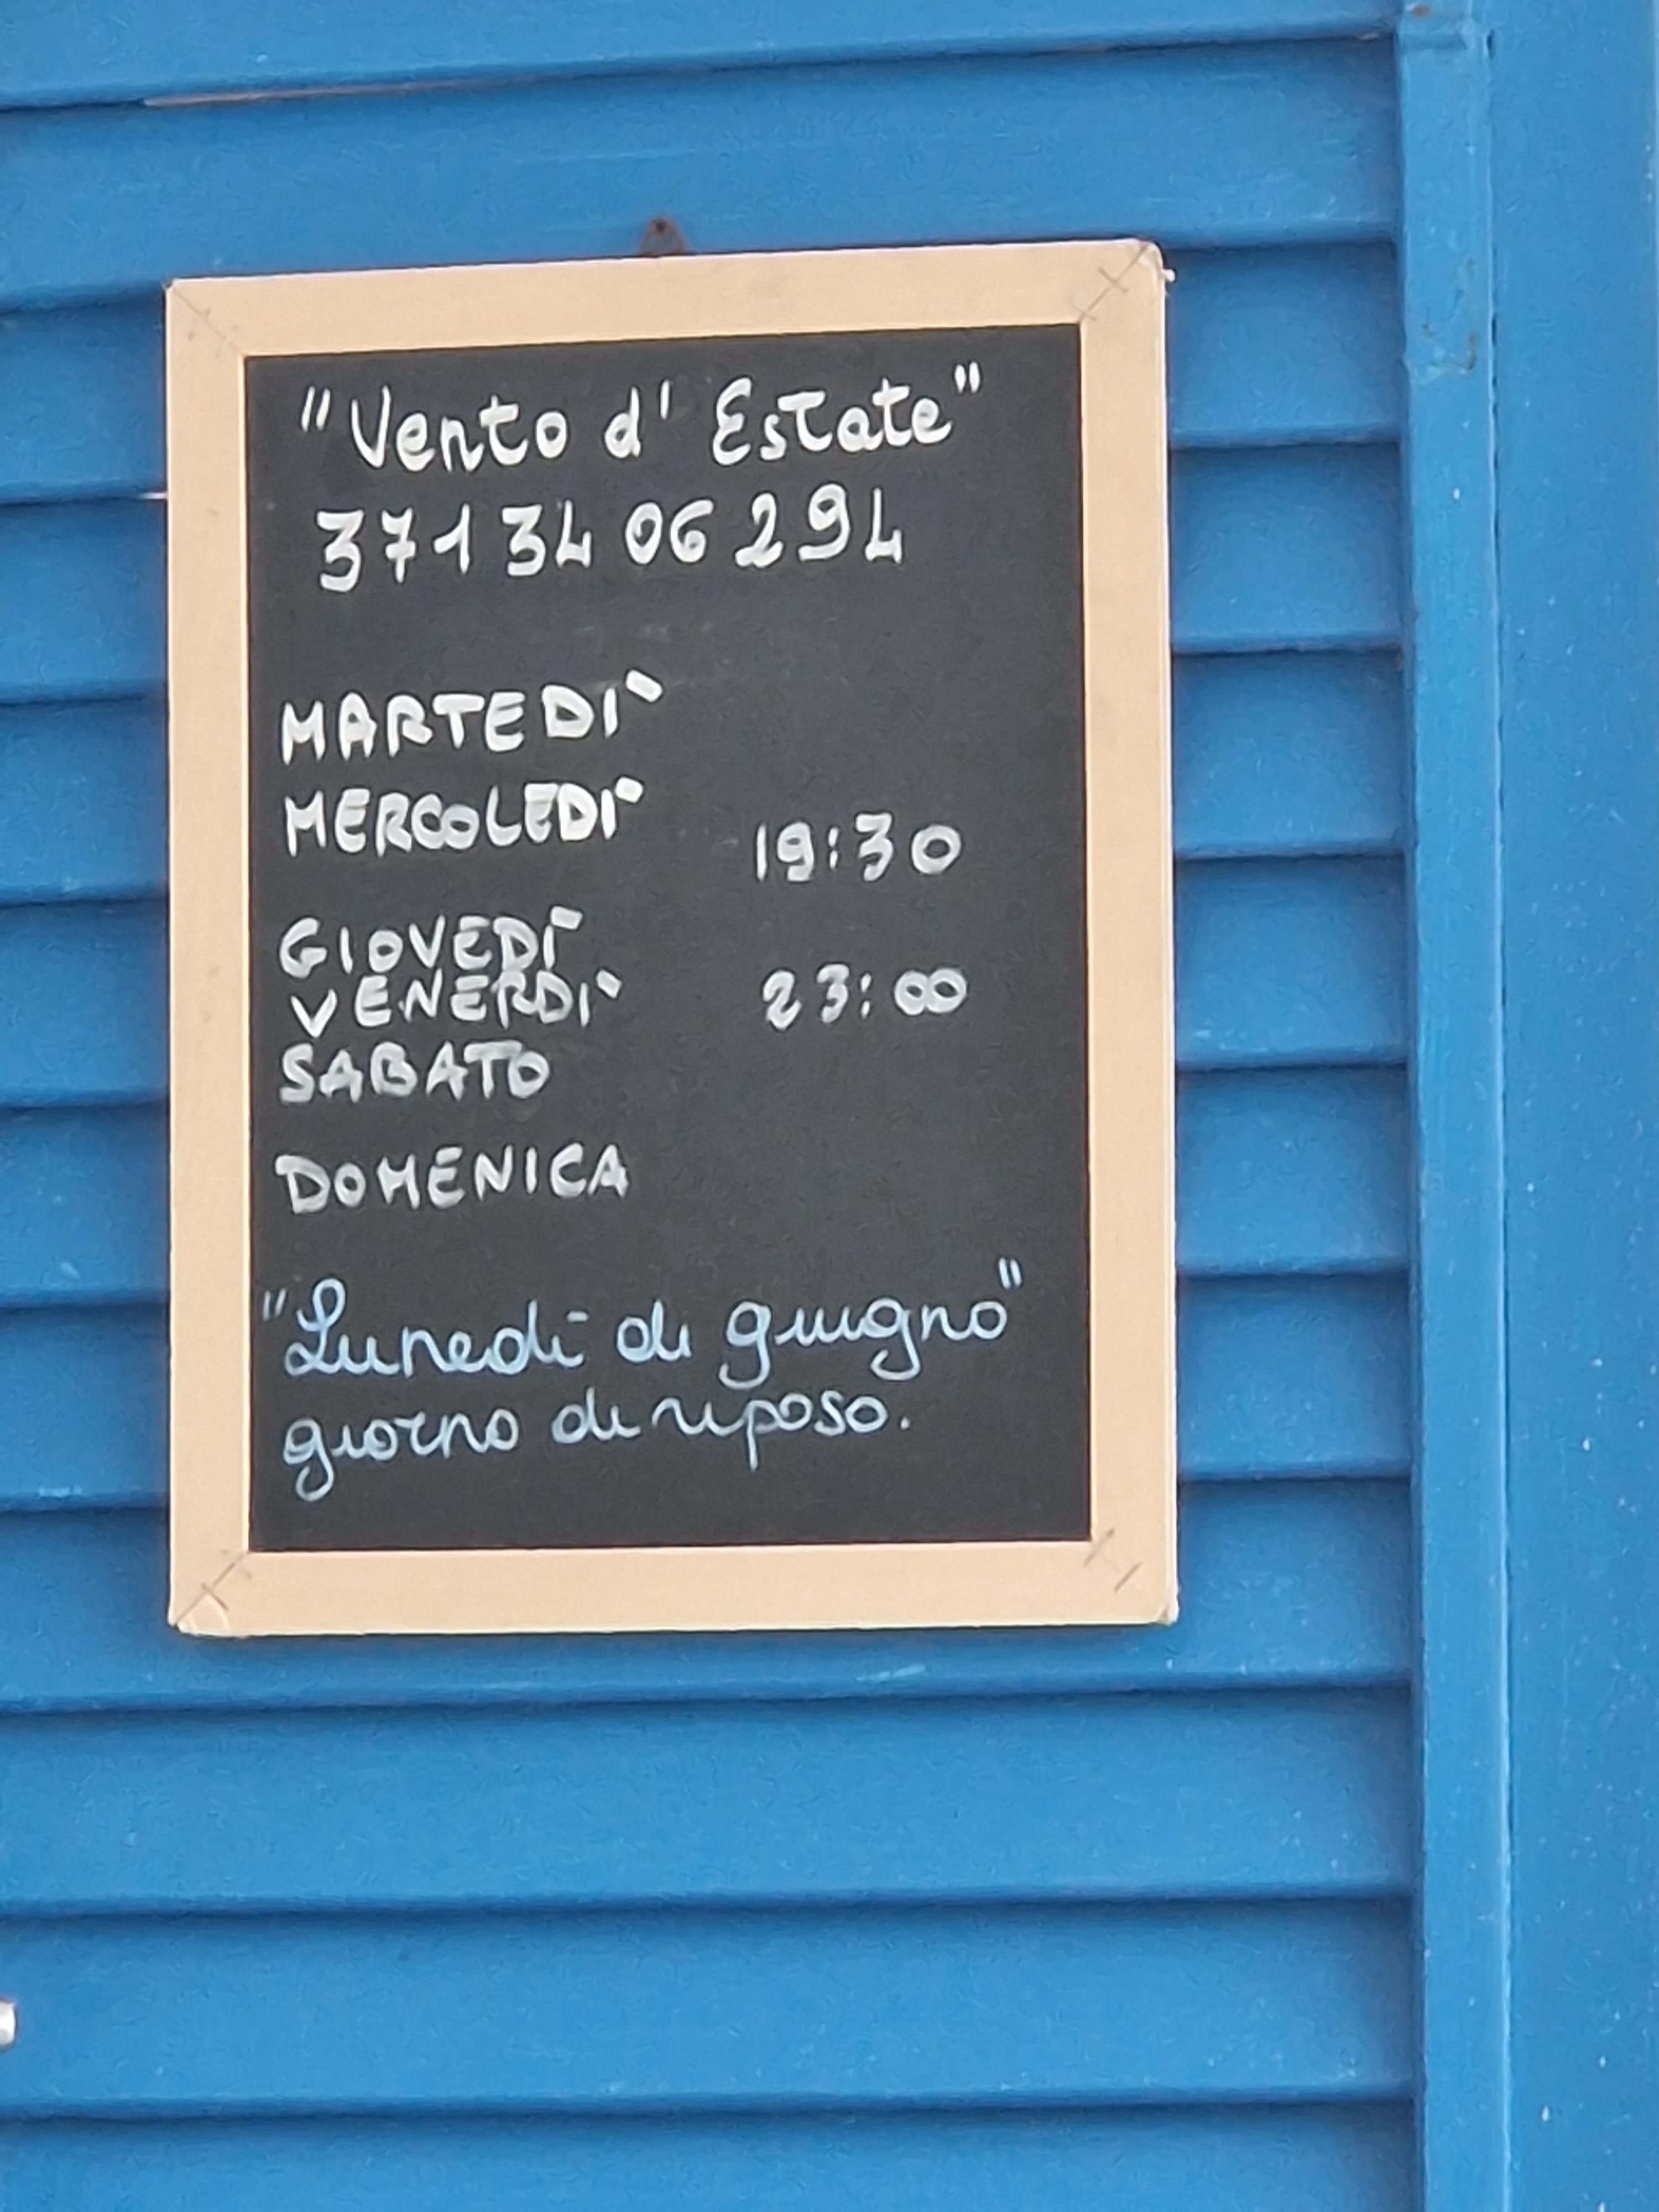 "Vento d' Estate"
371 34 06 294
MARTEDI`
MERCOLEDI`
19:30
GIOVEDI`
VENERDI`
23:00
SABATO
DOMENICA
"Lunedì di giugno"
giorno di riposo.